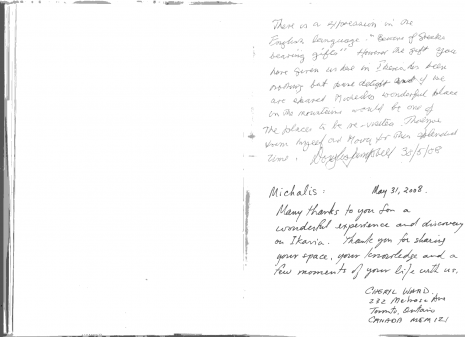 There is a expression in the
English language: "Beware of Greeks
bearing gifts" However the gift you
have given us here in Theoktistes been
nothing but pure delight and if we
are spared Michalis wonderful place
in the mountains would be one of
the places to be re-visited. Thankyou
from myself and Moira for this splendid
time. Douglas Campbell 30/5/08
Michalis: May 31, 2008.
Many thanks to you for a
wonderful experience and discovery
on Ikaria. Thank you for sharing
your space, your knowledge and a
few moments of your life with us.
CHERYL WARD.
232 Melrose Ave
Toronto, Ontario
CANADA M5M 1Z1